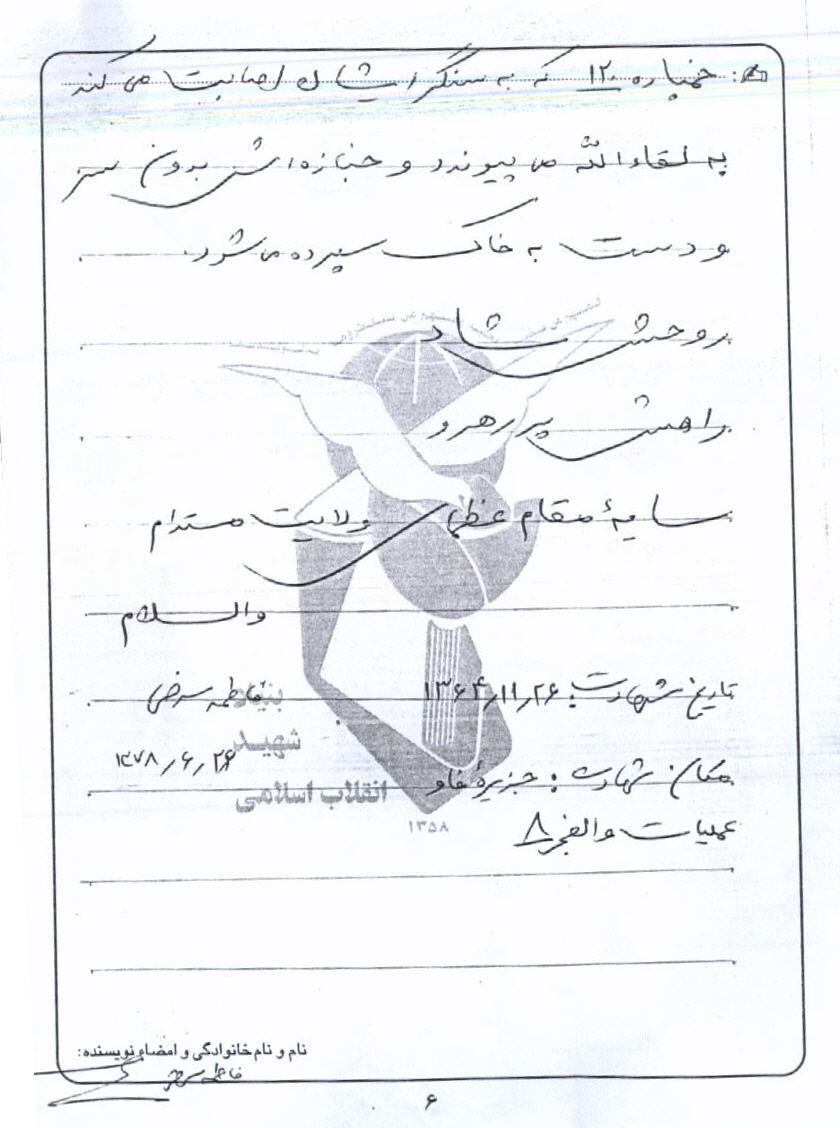 خمپاره ۱۲۰ که به سنگر ایشان اصابت می کند
به لقاءالله می پیوندد و جنازه اش بدون سر
و دست به خاک سپرده می شود.
روحش شاد
راهش پر رهرو
سایهٔ مقام عظمای ولایت مستدام
والسلام
تاریخ شهادت: ۱۳۶۴/۱۱/۲۶ فاطمه
۱۳۷۸/۶/۲۶
مکان شهادت: جزیرهٔ فاو
عملیات والفجر ۸
بنیاد
شهید
انقلاب اسلامی
۱۳۵۸
نام و نام خانوادگی و امضاء نویسنده:
فاطمه
۶